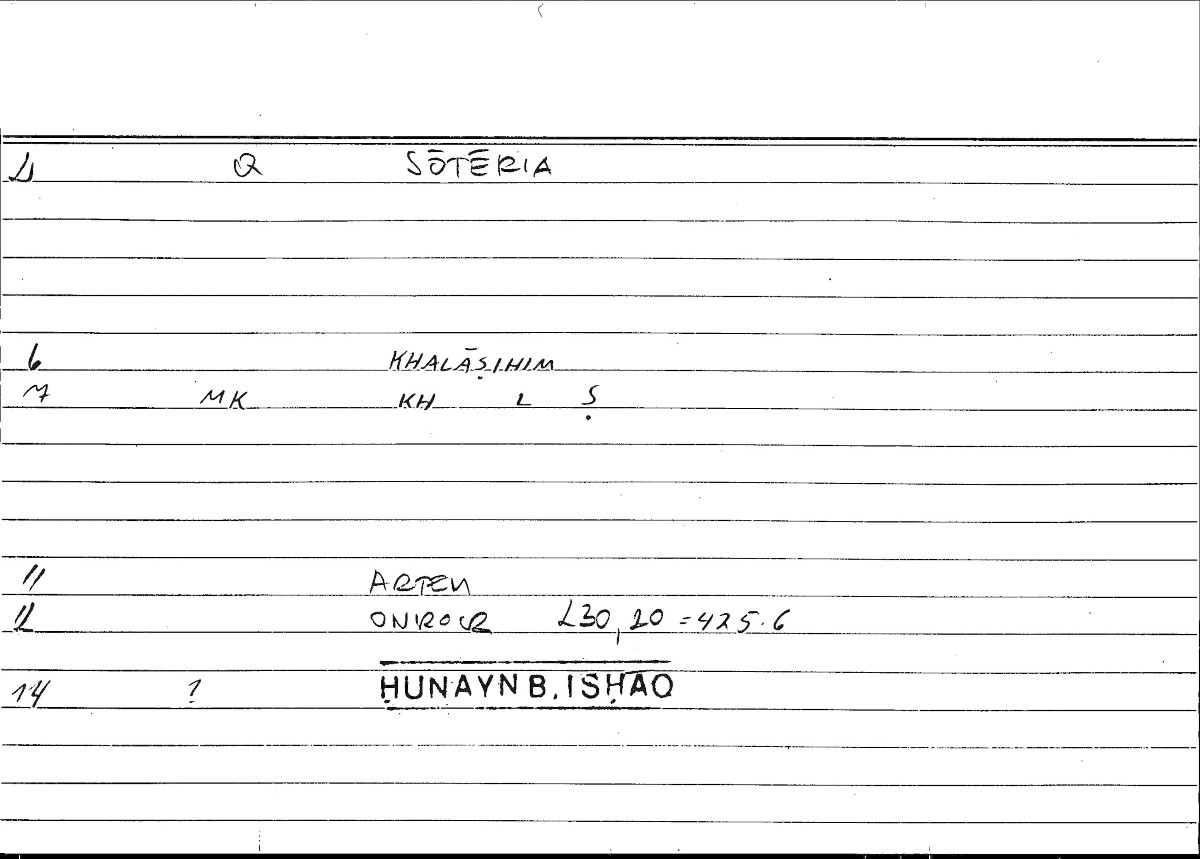 Q SŌTĒRIA
6 KHALĀṢIHIM
7 MK KH L Ṣ
11 ARTEM
12 ONIROCR 230,20 = 425.6
14 ? ḤUNAYN B. ISḤĀQ